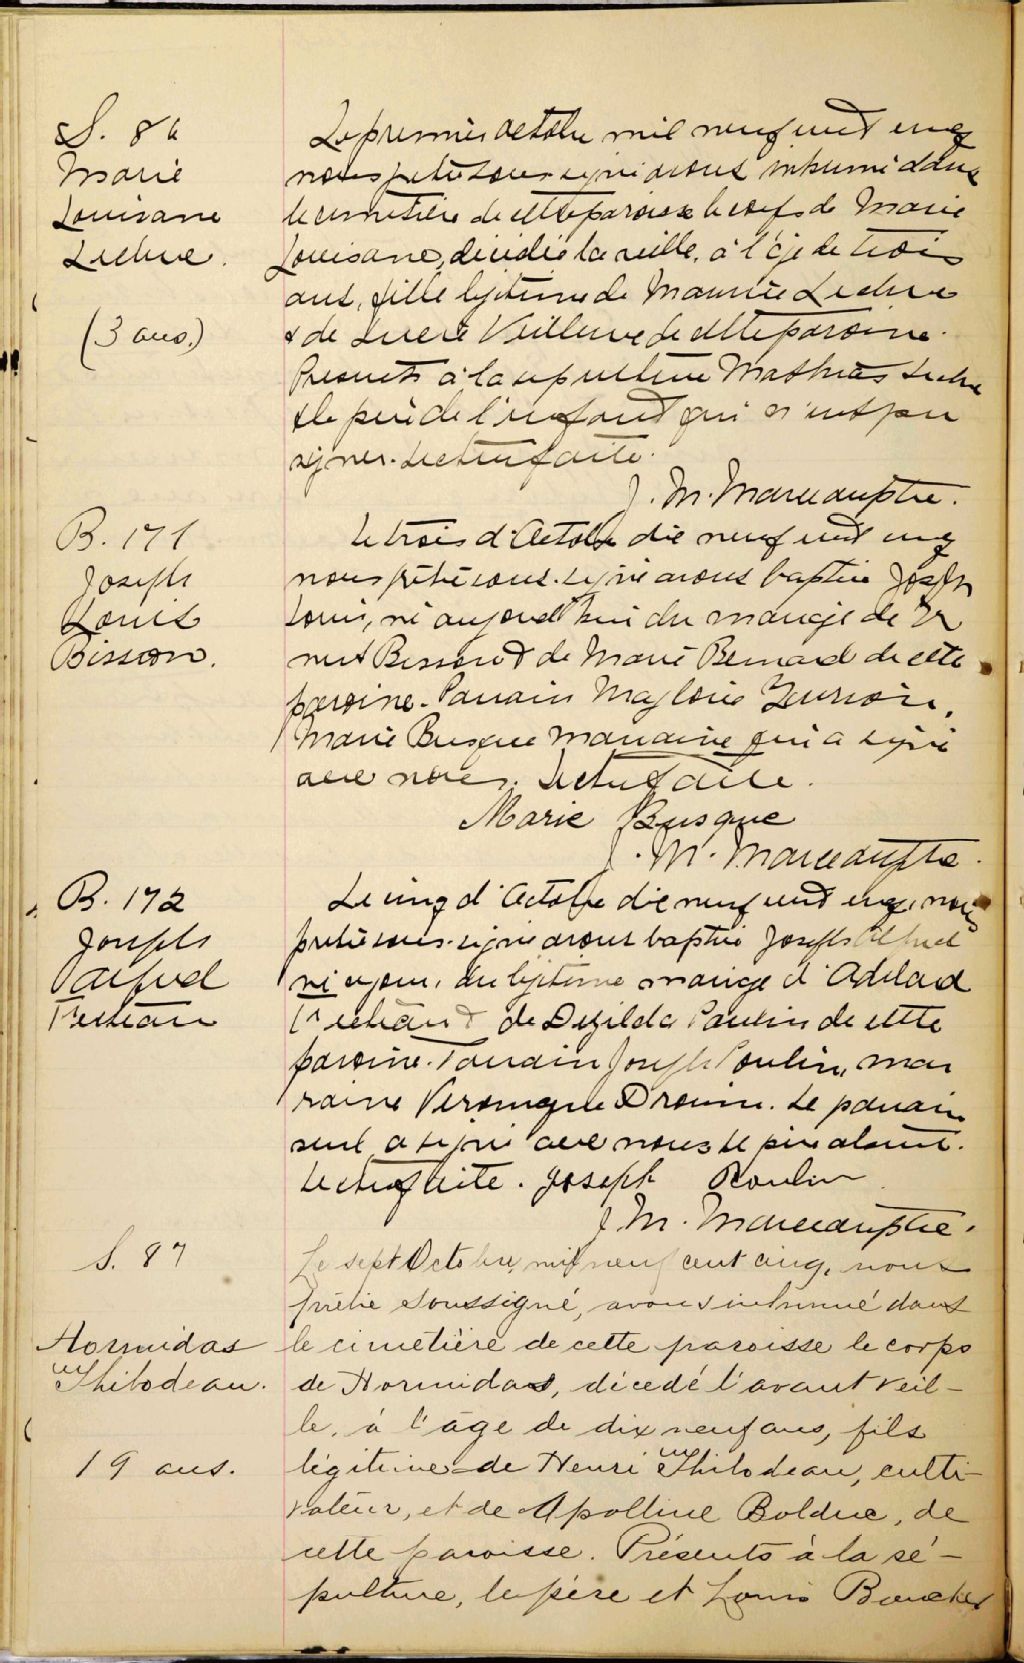 S. 86
Marie
Louisane
Leclerc.
(3 ans.)
Le premier Octobre mil neuf cent cinq
nous prêtre soussigné avons inhumé dans
le cimetière de cette paroisse le corps de Marie
Louisane, décédée la veille, à l'âge de trois
ans, fille légitime de Maurice Leclerc
& de Veilleux de cette paroisse.
Présents à la sépulture Mathias Leclerc
& le père de l'enfant qui n'ont pu
signer. Lecture faite.
J. M. Marceau ptre.
B. 171
Joseph
Louis
Bisson.
Le trois d'Octobre dix neuf cent cinq
nous prêtre sous-signé avons baptisé Joseph
Louis, né aujourd'hui du mariage de
Bisson & de Marie Bernard de cette
paroisse. Parrain Magloire
Marie Busque Marraine qui a signé
avec nous. Lecture faite.
Marie Busque
J. M. Marceau ptre.
B. 172
Joseph
Alfred
Le cinq d'Octobre dix neuf cent cinq, nous
prêtre sous-signé avons baptisé Joseph Alfred
né ce jour, du légitime mariage d'Adélard
& de Dézilda Poulin de cette
paroisse. Parrain Joseph Poulin, mar
raine Véronique Drouin. Le parrain
seul a signé avec nous le père absent.
Lecture faite. Joseph Poulin
J. M. Marceau ptre.
S. 87
Hormidas
Thibodeau.
19 ans.
Le sept Octobre, mil neuf cent cinq, nous
prêtre soussigné, avons inhumé dans
le cimetière de cette paroisse le corps
de Hormidas, décédé l'avant veil-
le, à l'âge de dix neuf ans, fils
légitime de Henri Thibodeau, culti-
vateur, et de Apolline Bolduc, de
cette paroisse. Présents à la sé-
pulture, le père et Louis Boucher